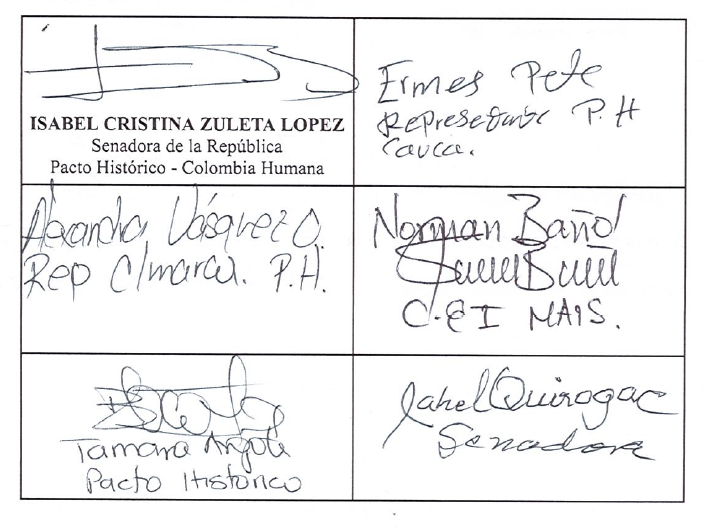 ISABEL CRISTINA ZULETA LOPEZ
Senadora de la República
Pacto Histórico - Colombia Humana
Ermes Pete
Representante P.H
Cauca.
Alexandra Vásquez O.
Rep C/marca. P.H.
Norman Bañol
C.E I MAIS.
Tamara Argote
Pacto Histórico
Isabel Quiroga C
Senadora